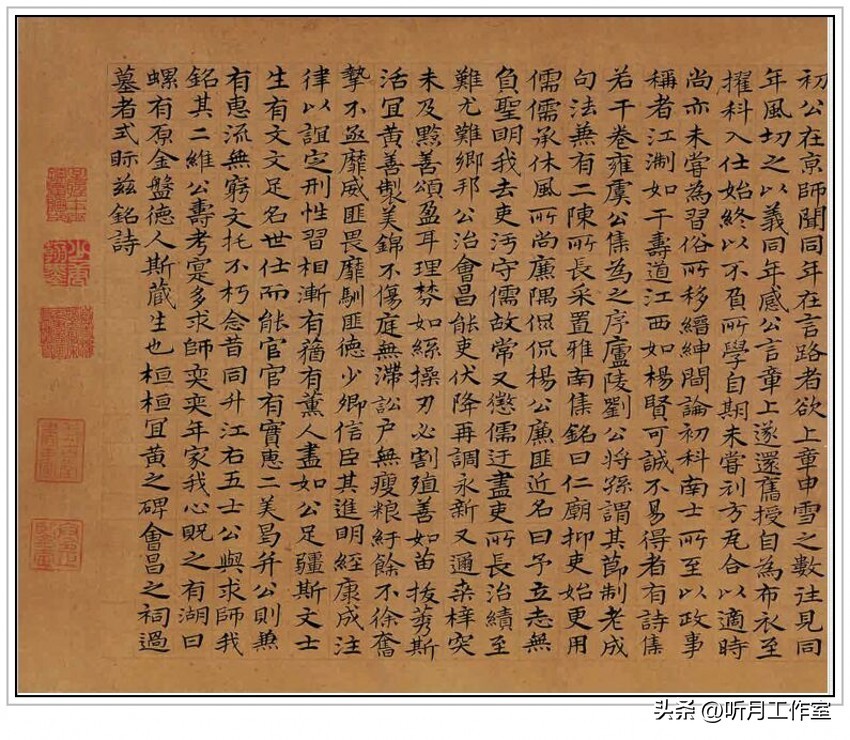 初公在京師聞同年在言路者欲上章申雪之數往見同
年風切之以義同年感公言章上遂還舊授自為布衣至
擢科入仕始終以不負所學自期未嘗刓方合以適時
尚亦未嘗為習俗所移縉紳間論初科南士所至以政事
稱者江淛如干壽道江西如楊賢可誠不易得者有詩集
若干卷雍虞公集為之序廬陵劉公將孫謂其節制老成
句法兼有二陳所長采置雅南集銘曰仁廟抑吏始更用
儒儒承休風所尚廉隅侃侃楊公廉匪近名曰予立志無
負聖明我去吏汚守儒故常又懲儒迂盡吏所長治績至
難尤難鄉邦公治會昌能吏伏降再調永新又通桒梓突
未及黔善頌盈耳理棼如絲操刃必割殖善如苗拔莠斯
活宜黃善製美錦不傷庭無滯訟户無瘦粮紆餘不徐奮
摯不亟靡威匪畏靡馴匪德少卿信臣其進明經康成注
律以誼定刑性習相漸有蕕有薰人盡如公足疆斯文士
生有文文足名世仕而能官官有實惠二美曷并公則兼
有惠流無窮文托不朽念昔同升江右五士公與求師我
銘其二維公壽考寔多求師奕奕年家我心貺之有湖曰
螺有原金盤德人斯藏生也桓桓宜黃之碑會昌之祠過
墓者式眎兹銘詩
头条 @听月工作室